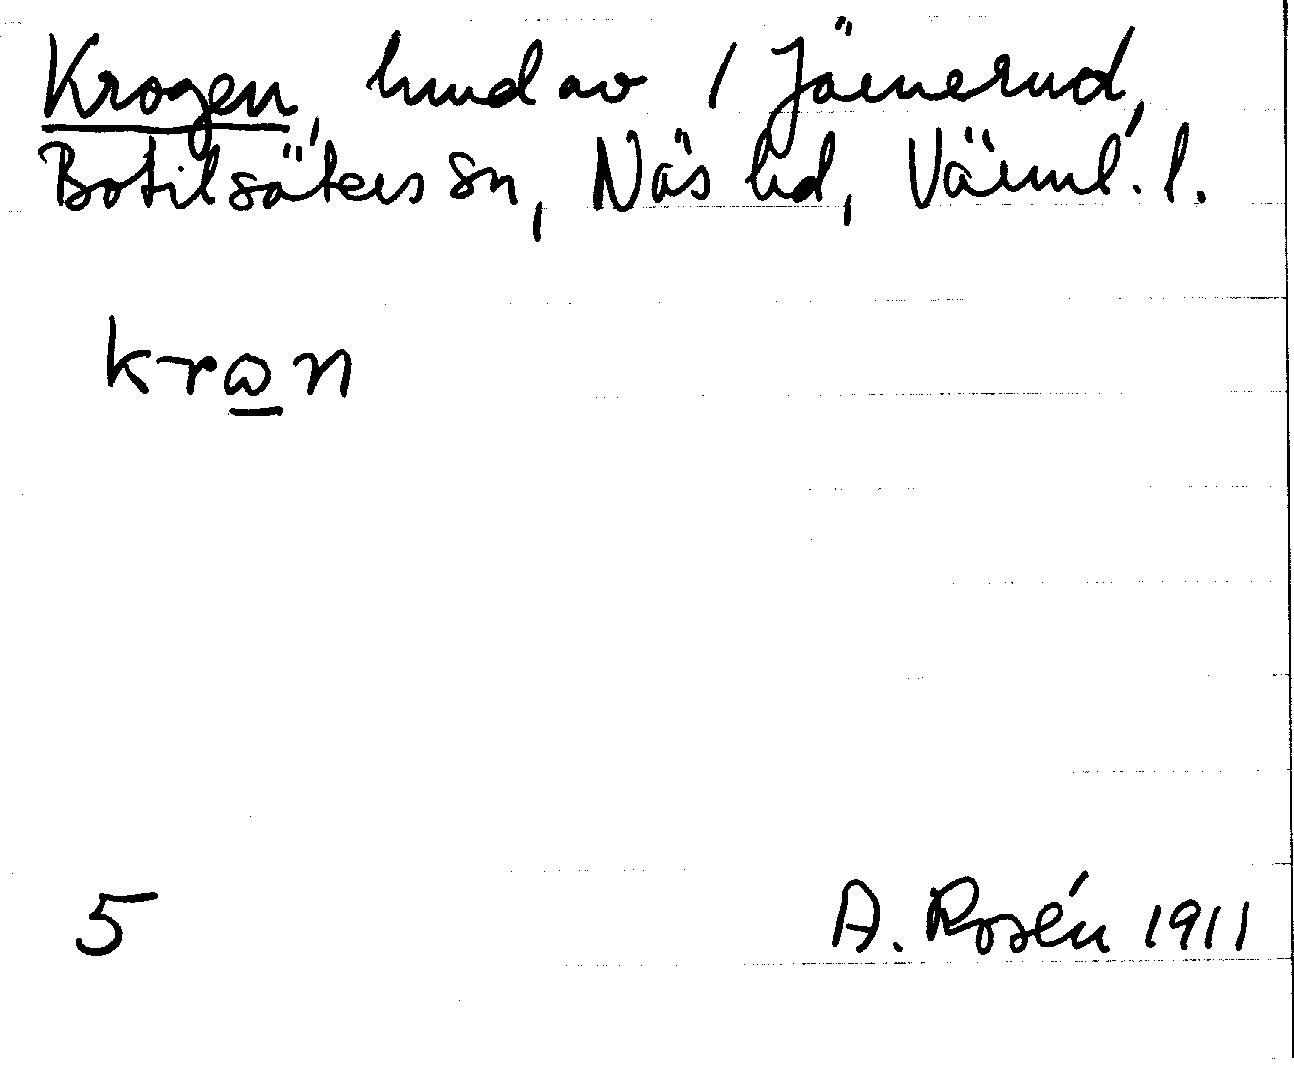 Krogen, hmd av 1 Järnerud,
Botilsäters sn, Näs hd, Värml. l.
krωn
5 A. Rosén 1911